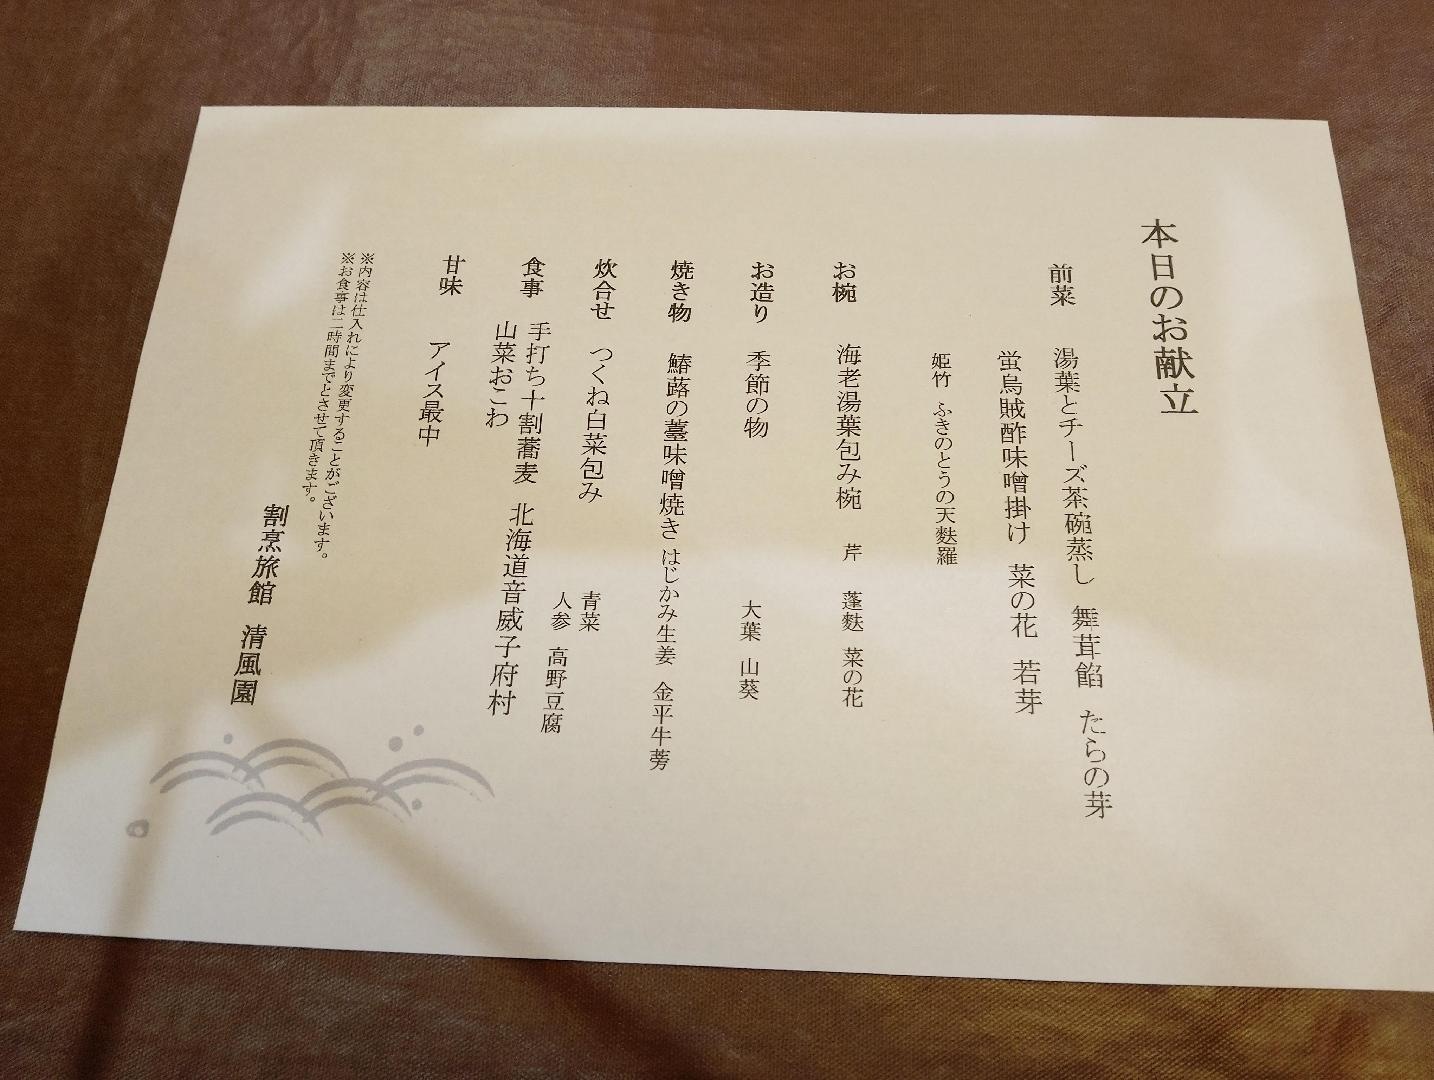 本日のお献立
前菜 湯葉とチーズ茶碗蒸し 舞茸餡 たらの芽
蛍烏賊酢味噌掛け 菜の花 若芽
姫竹 ふきのとうの天麩羅
お椀 海老湯葉包み椀 芹 蓬麩 菜の花
お造り 季節の物 大葉 山葵
焼き物 鰆蕗の薹味噌焼き はじかみ生姜 金平牛蒡
炊合せ つくね白菜包み 青菜
人参 高野豆腐
食事 手打ち十割蕎麦 北海道音威子府村
山菜おこわ
甘味 アイス最中
※内容は仕入れにより変更することがございます。
※お食事は二時間までとさせて頂きます。
割烹旅館 清風園